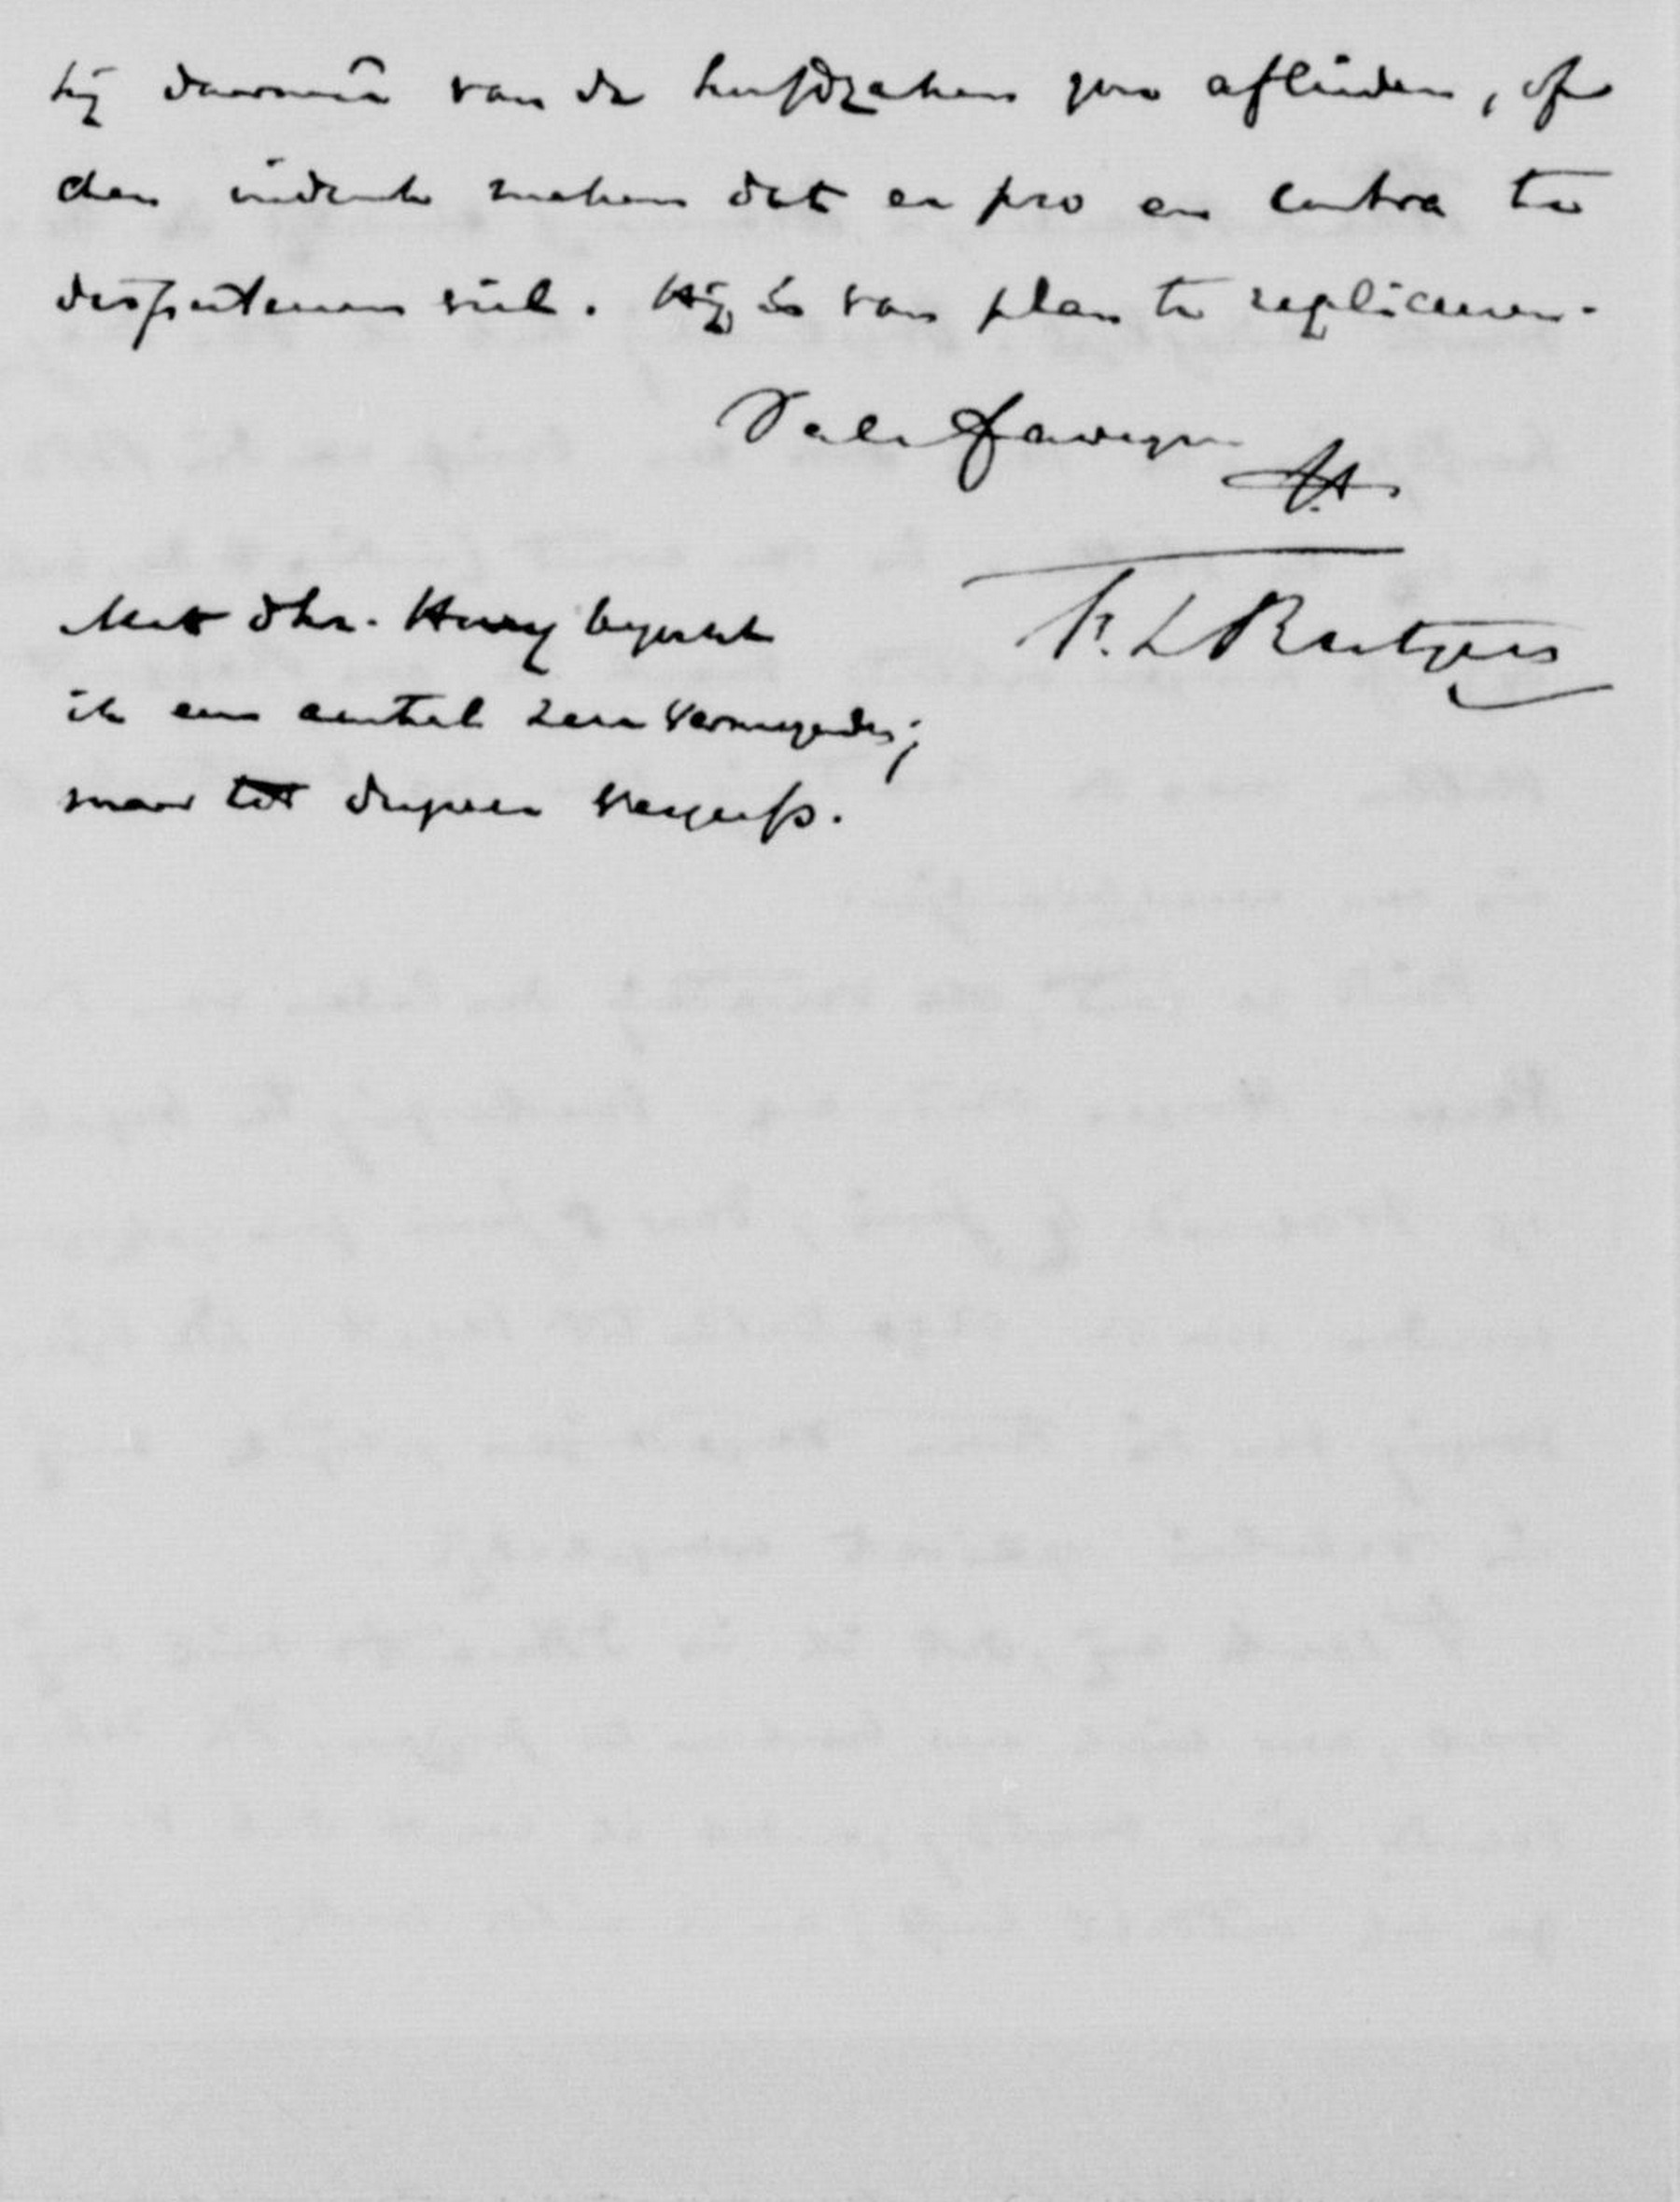 hij daarmeê van de hoofdzaken zou afleiden, of
den indruk maken dat er pro en contra te
disputeeren viel. Hij is van plan te repliceeren.
Vale faveque
tt.
F. L Rutgers
Met dhr. Hovy besprak
ik een aantal zeer vermogenden;
maar tot dusver vergeefs.